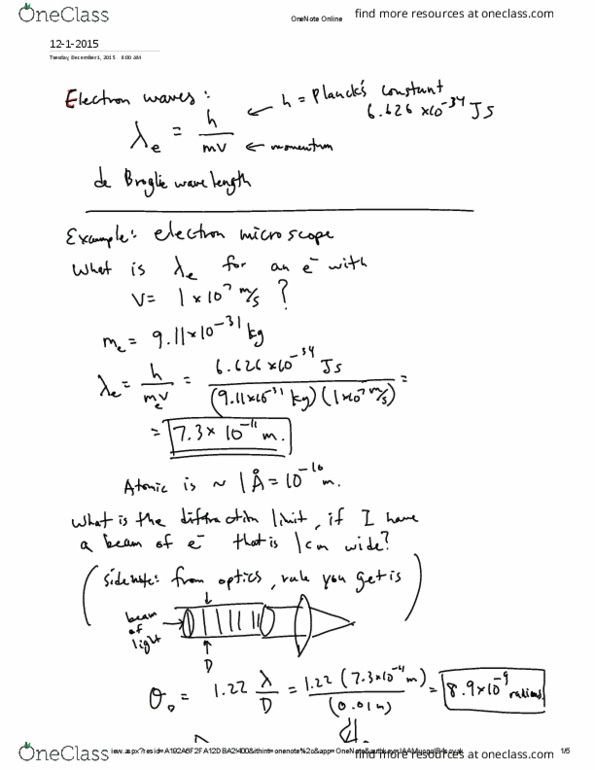 OneClass
OneNote Online
find more resources at oneclass.com
12-1-2015
Tuesday, December 1, 2015 8:00 AM
Electron waves:
λe = h / mv
← h = Planck's constant
6.626 ×10^-34 Js
← momentum
de Broglie wavelength
Example: electron microscope
What is λe for an e⁻ with
V= 1×10^7 m/s ?
me = 9.11×10^-31 kg
λe = h / mev = 6.626×10^-34 Js / (9.11×10^-31 kg)(1×10^7 m/s) =
= 7.3 × 10^-11 m.
Atomic is ~ 1Å = 10^-10 m.
What is the diffraction limit, if I have
a beam of e⁻ that is 1cm wide?
(sidenote: from optics, rule you get is)
beam
of
light
D
θ0 = 1.22 λ/D = 1.22 (7.3×10^-11 m) / (0.01m) = 8.9×10^-9 radians
d
1/5
OneClass
find more resources at oneclass.com